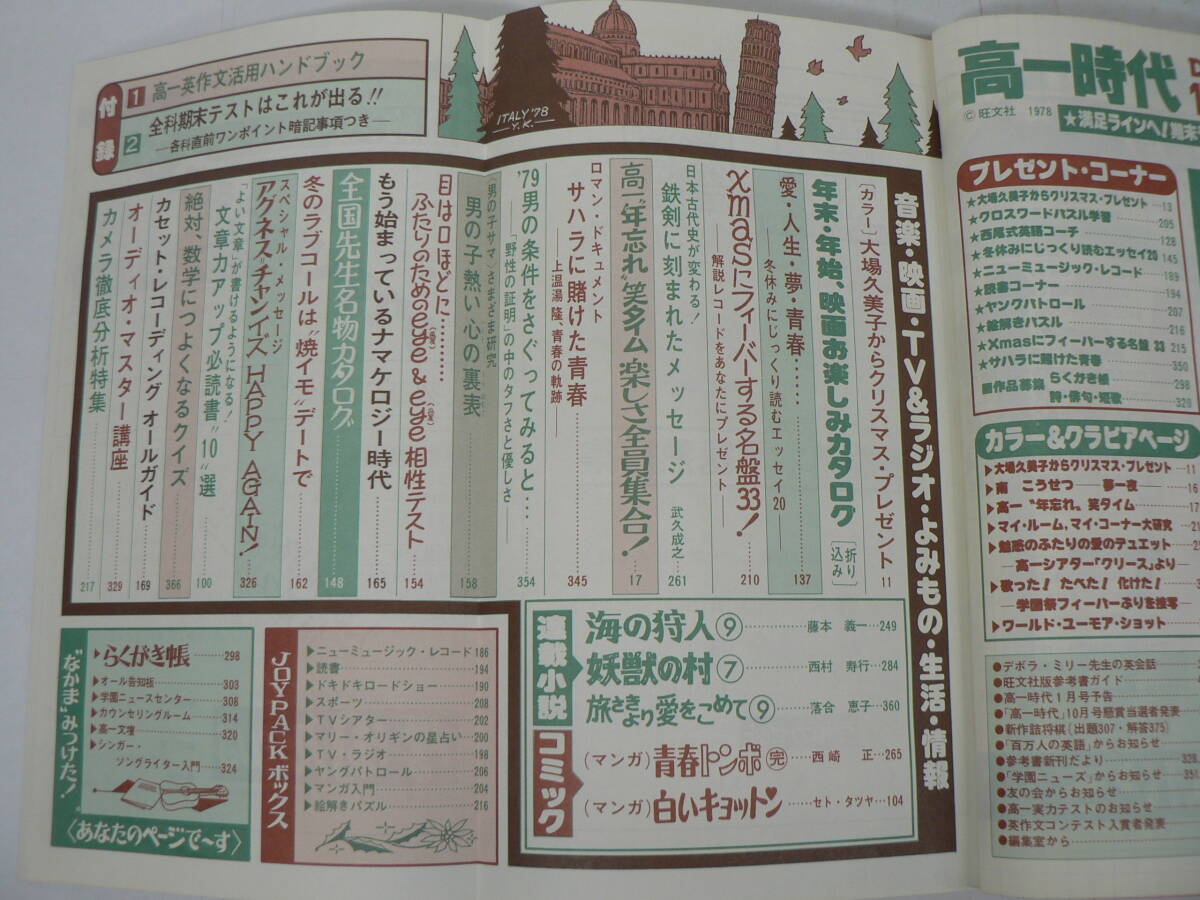 付録
1 高一英作文活用ハンドブック
2 全科期末テストはこれが出る!!
―各科直前ワンポイント暗記事項つき―
ITALY '78
Y.K.
音楽・映画・TV&ラジオ・よみもの・生活・情報
〔カラー〕大場久美子からクリスマス・プレゼント 11
年末・年始、映画お楽しみカタログ〔折り込み〕
愛・人生・夢・青春…… 137
―冬休みにじっくり読むエッセイ20―
Xmasにフィーバーする名盤33! 210
―解説レコードをあなたにプレゼント―
日本古代史が変わる!
鉄剣に刻まれたメッセージ 武久成之 261
高一"年忘れ"笑タイム 楽しさ全員集合! 17
ロマン・ドキュメント
サハラに賭けた青春 345
―上温湯隆、青春の軌跡―
'79男の条件をさぐってみると… 354
―「野性の証明」の中のタフさと優しさ―
男の子サマ♂さまざま研究
男の子熱い心の裏表 158
目は口ほどに……
ふたりのためのeye(愛)&eye(愛)相性テスト 154
もう始まっているナマケロジー時代 165
全国先生名物カタログ 148
冬のラブコールは"焼イモ"デートで 162
スペシャル・メッセージ
アグネス・チャンイズ HAPPY AGAIN! 326
「よい文章」が書けるようになる!
文章力アップ必読書"10"選 100
絶対、数学につよくなるクイズ 366
カセット・レコーディング オールガイド 169
オーディオ・マスター講座 329
カメラ徹底分析特集 217
連載小説
海の狩人⑨ 藤本 義一 249
妖獣の村⑦ 西村 寿行 284
旅さきより愛をこめて⑨ 落合 恵子 360
コミック
(マンガ)青春トンボ 完 西崎 正 265
(マンガ)白いキョットン セト・タツヤ 104
JOYPACK ボックス
▶ニューミュージック・レコード 186
▶読書 194
▶ドキドキロードショー 190
▶スポーツ 208
▶TVシアター 202
▶マリー・オリギンの星占い 200
▶TV・ラジオ 198
▶ヤングパトロール 206
▶マンガ入門 204
▶絵解きパズル 216
"なかま"みつけた!
▶らくがき帳 298
▶オール告知板 303
▶学園ニュースセンター 308
▶カウンセリングルーム 314
▶高一文壇 320
▶シンガー・
ソングライター入門 324
〈あなたのページで〜す〉
高一時代
©旺文社 1978
★満足ラインへ!
プレゼント・コーナー
★大場久美子からクリスマス・プレゼント 13
★クロスワードパズル学習 205
★西尾式英語コーチ 128
★冬休みにじっくり読むエッセイ20 145
★ニューミュージック・レコード 189
★読書コーナー 194
★ヤングパトロール 207
★絵解きパズル 216
★Xmasにフィーバーする名盤33 215
★サハラに賭けた青春 350
作品募集 らくがき帳 298
詩・俳句・短歌 320
カラー&グラビアページ
▶大場久美子からクリスマス・プレゼント 11
▶南 こうせつ―夢一夜― 16
▶高一"年忘れ"笑タイム
▶マイ・ルーム、マイ・コーナー大研究
▶魅惑のふたりの愛のデュエット
―高一シアター「グリース」より―
▶歌った! たべた! 化けた!
―学園祭フィーバーぶりを接写―
▶ワールド・ユーモア・ショット
●デボラ・ミリー先生の英会話
●旺文社版参考書ガイド
●高一時代1月号予告
●「高一時代」10月号懸賞当選者発表
●新作詰将棋(出題307・解答375)
●「百万人の英語」からお知らせ
●参考書新刊だより
●「学園ニュース」からお知らせ
●友の会からお知らせ
●高一実力テストのお知らせ
●英作文コンテスト入賞者発表
●編集室から